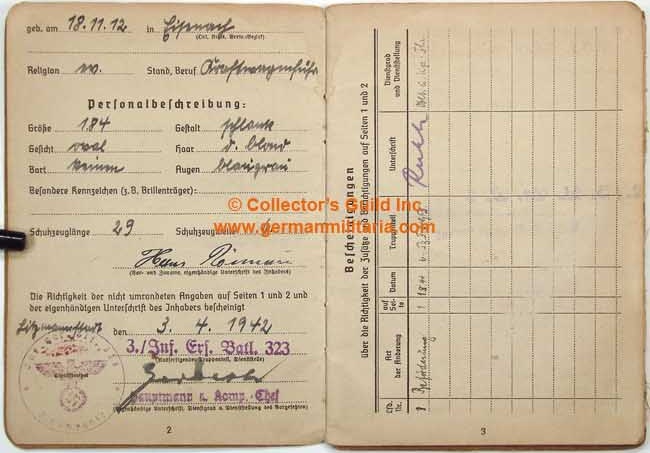 geb. am 18.11.12 in Eisenach
(Ort, Kreis, Verw.-Bezirk)
Religion ev. Stand, Beruf Kraftwagenführ
Personalbeschreibung:
Größe 184 Gestalt schlank
Gesicht oval Haar d. blond
Bart keinen Augen blaugrau
Besondere Kennzeichen (z.B. Brillenträger):
Schuhzeuglänge 29 Schuhzeugweite
Hans
(Vor- und Zuname, eigenhändige Unterschrift des Inhabers)
Die Richtigkeit der nicht umrandeten Angaben auf Seiten 1 und 2 und
der eigenhändigen Unterschrift des Inhabers bescheinigt
Litzmannstadt den 3. 4. 1942
3./Inf. Ers. Batl. 323
(Ausfertigender Truppenteil, Dienststelle)
Hauptmann u. Komp.-Chef
(Eigenhändige Unterschrift, Dienstgrad u. Dienststellung des Vorgesetzten)
2
© Collector's Guild Inc
www.germanmilitaria.com
Bescheinigungen
über die Richtigkeit der Zusätze und Berichtigungen auf Seiten 1 und 2
Lfd. Nr.
Art der Änderung
auf Seite
Datum
Truppenteil
Unterschrift
Dienstgrad und Dienststellung
1 Beförderung 1
3